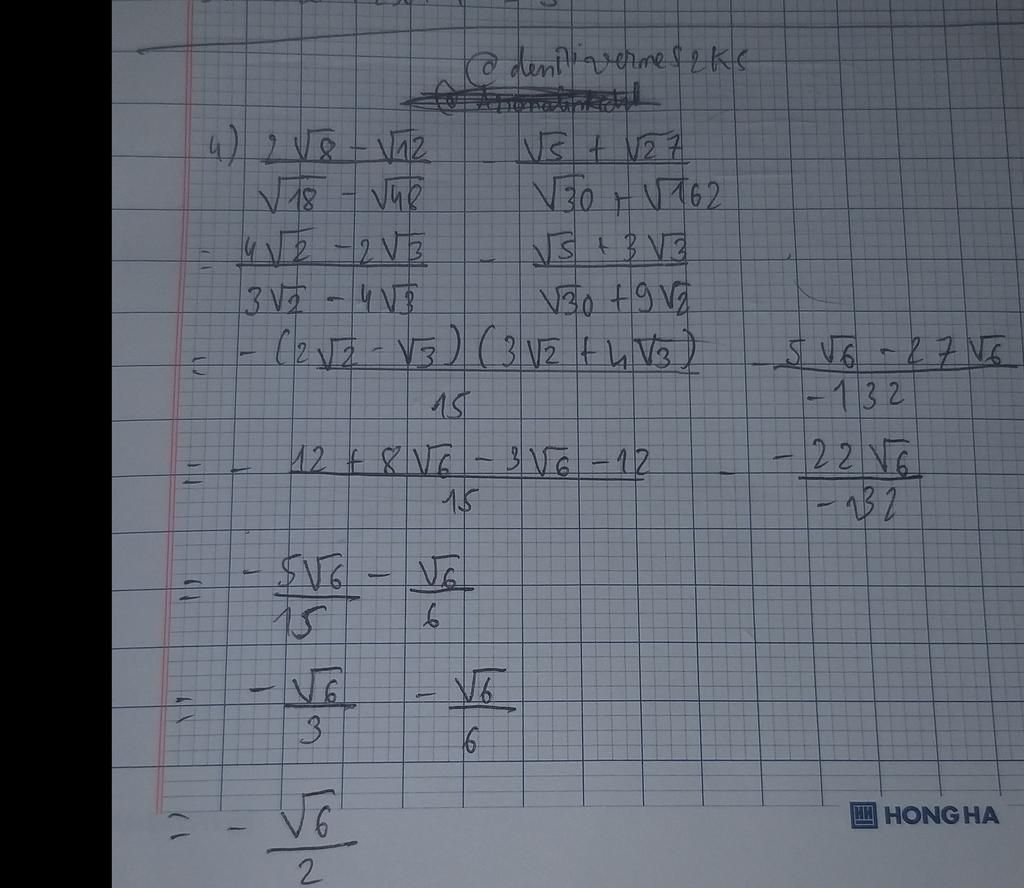 @denilivermes2k5
4) (2√8 - √12)/(√18 - √48) - (√5 + √27)/(√30 + √162)
= (4√2 - 2√3)/(3√2 - 4√3) - (√5 + 3√3)/(√30 + 9√2)
= -(2√2 - √3)(3√2 + 4√3)/15 - (5√6 - 27√6)/(-132)
= - (12 + 8√6 - 3√6 - 12)/15 - (-22√6)/(-132)
= - 5√6/15 - √6/6
= - √6/3 - √6/6
= - √6/2
HONG HA